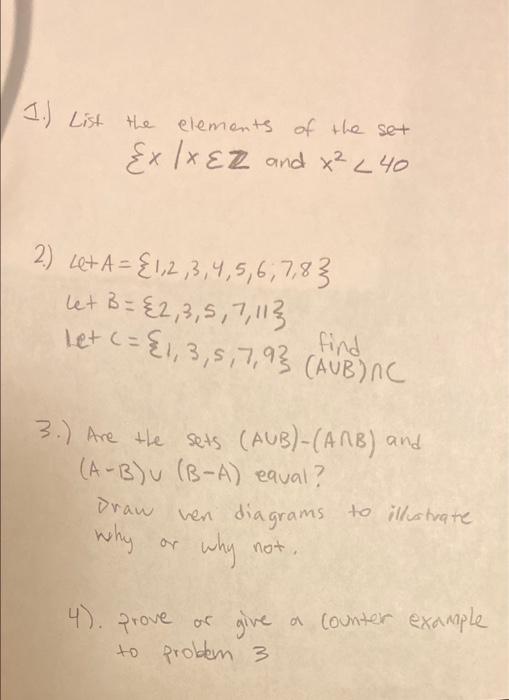 1.) List the elements of the set
{x | x ε Z and x² < 40
2.) Let A = {1,2,3,4,5,6,7,8}
Let B = {2,3,5,7,11}
Let C = {1,3,5,7,9} find
(A∪B)∩C
3.) Are the sets (A∪B)-(A∩B) and
(A-B)∪(B-A) equal?
Draw ven diagrams to illustrate
why or why not.
4). prove or give a counter example
to problem 3